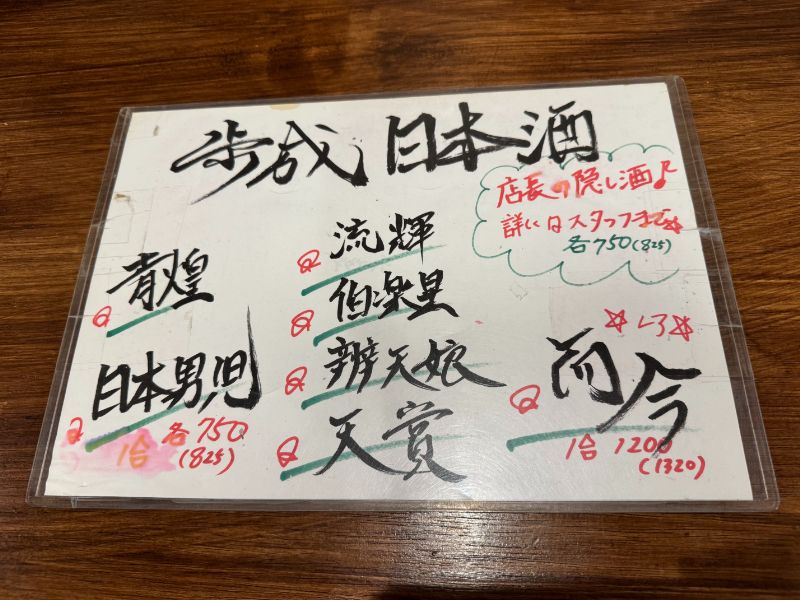 歩成 日本酒
店長の隠し酒♪
詳しくはスタッフまで☆
各750(825)
流輝
青煌
伯楽星
☆レア☆
日本男児
辨天娘
而今
各750
1合
(825)
天賞
1合 1200
(1320)